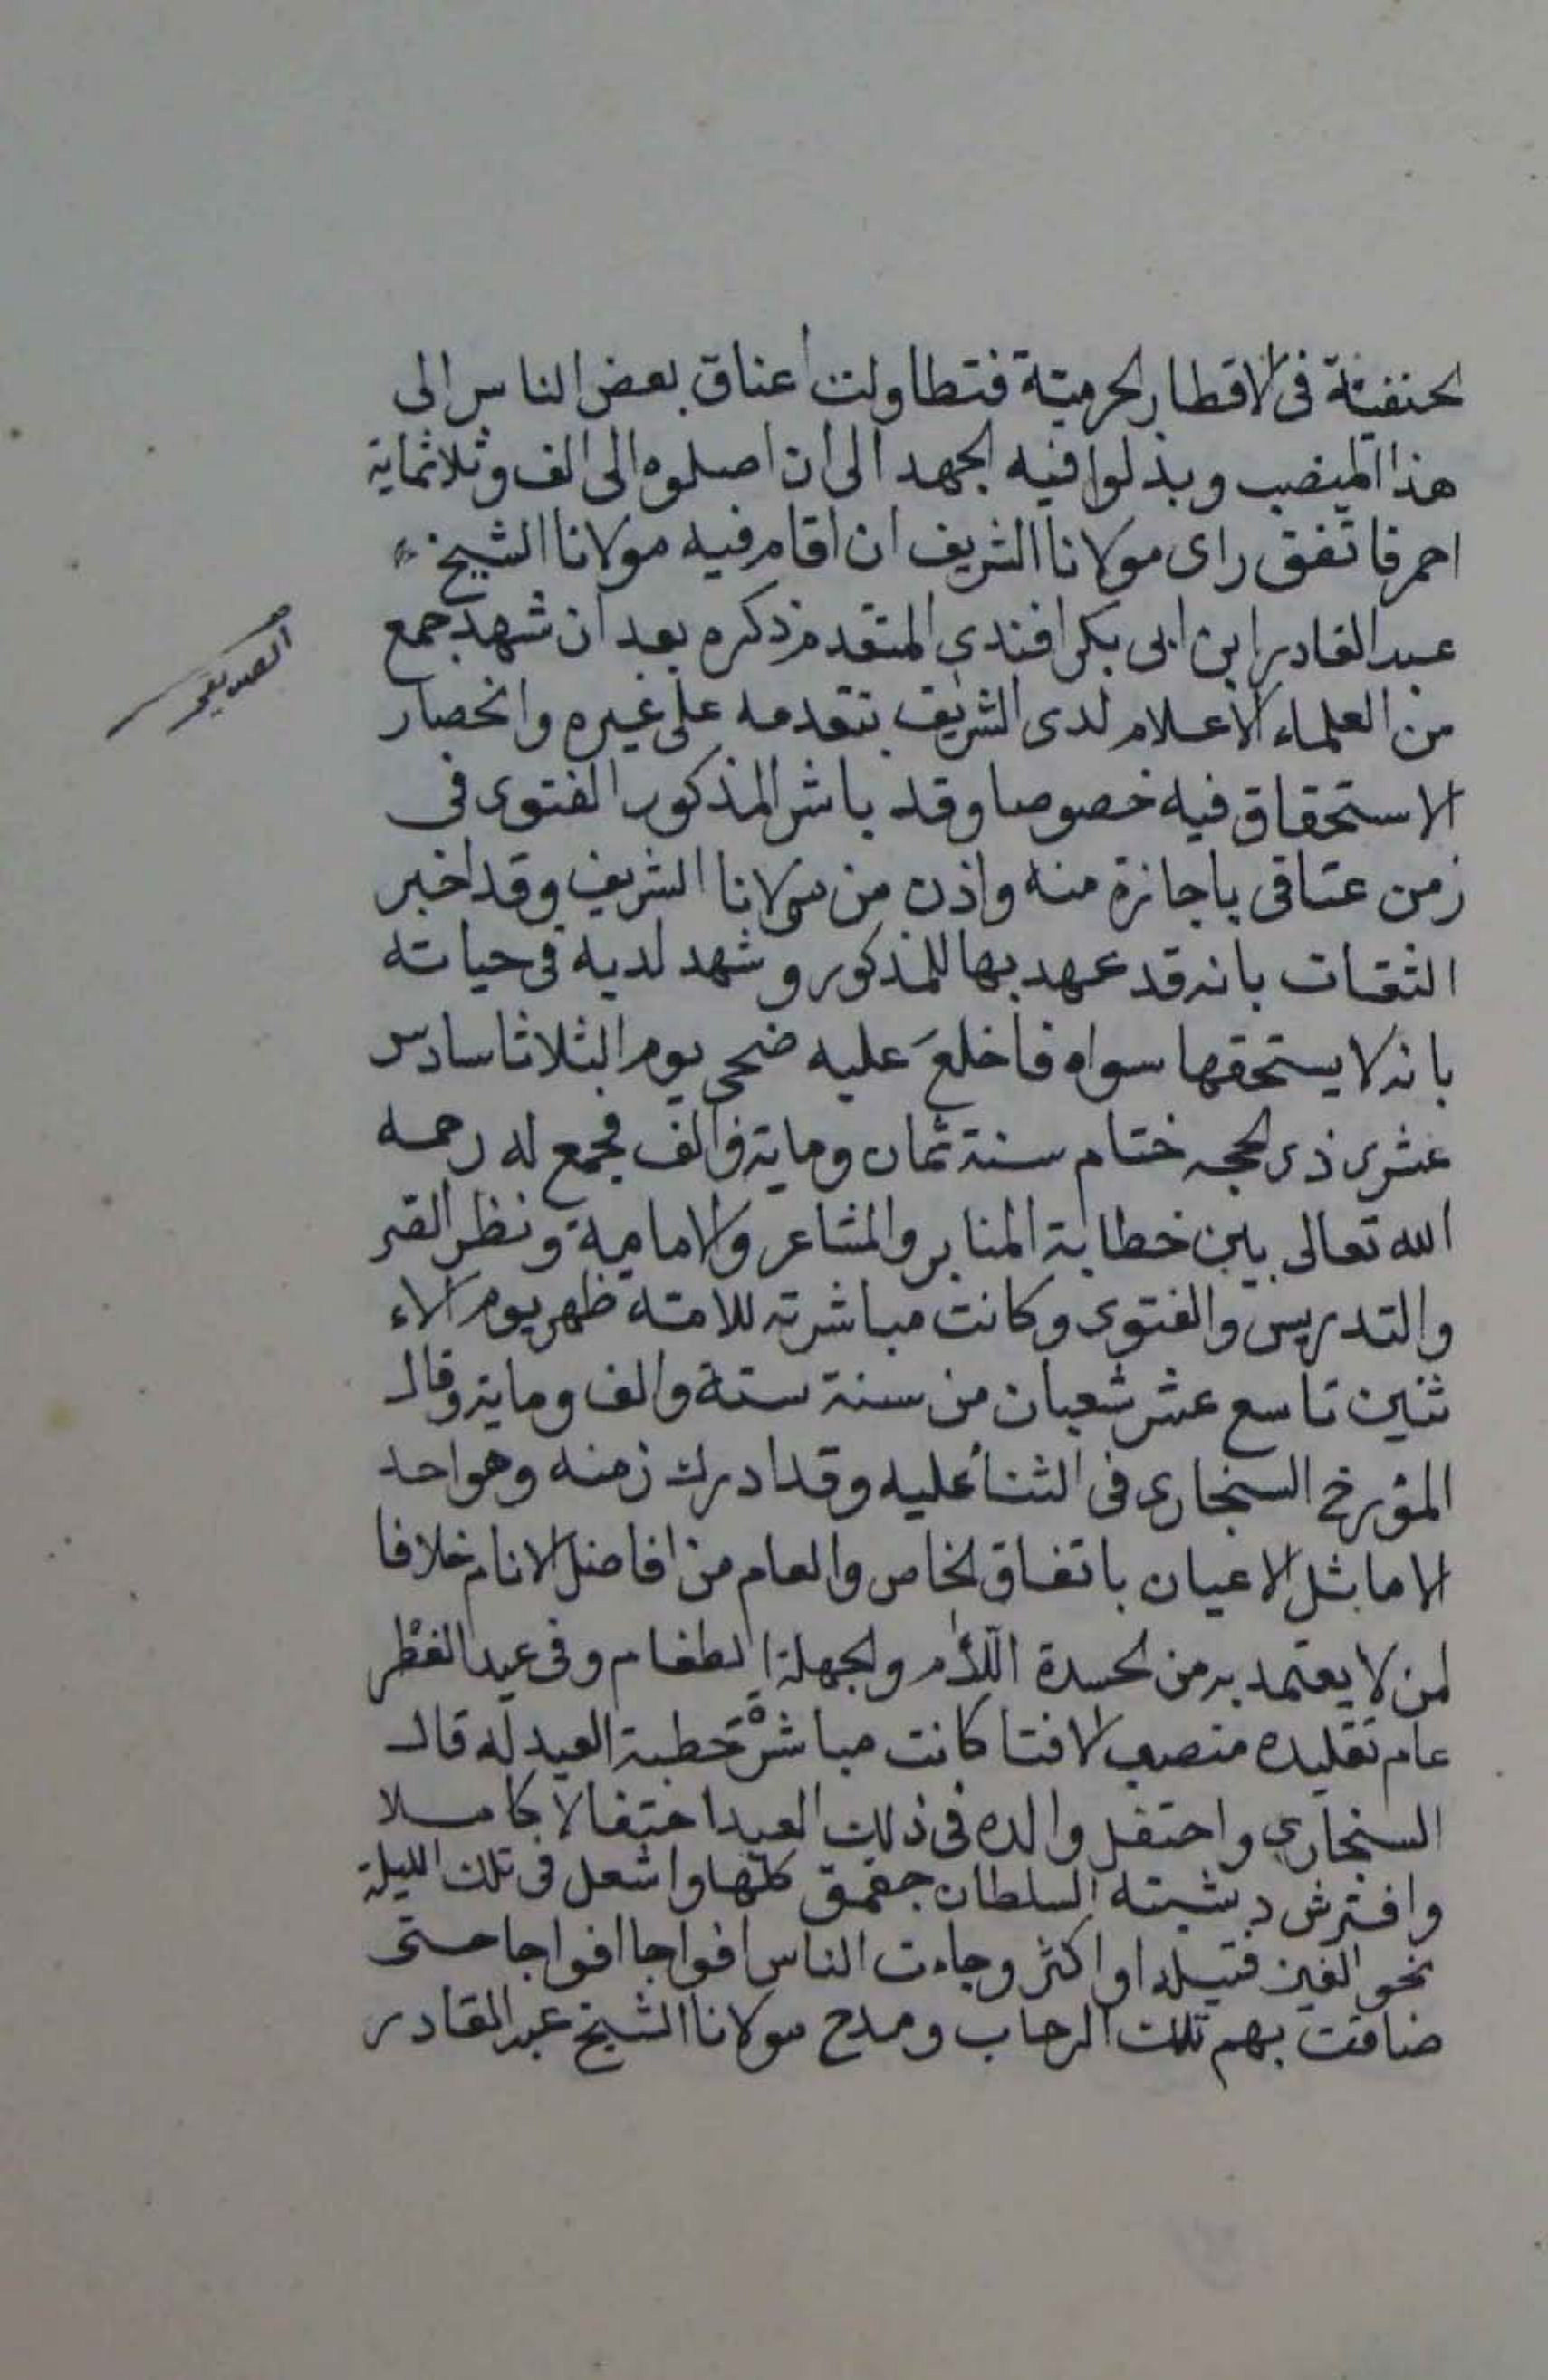 الحنفية فى الاقطار الحرمية فتطاولت اعناق بعض الناس الى
هذا المنصب وبذلوا فيه الجهد الى ان اصلوه الى الف وثلاثماية
احمر فاتفق راى مولانا الشريف ان اقام فيه مولانا الشيخ
عبد القادر ابن ابى بكر افندى المتقدم ذكره بعد ان شهد جمع
من العلماء الاعلام لدى الشريف بتقدمه على غيره وانحصار
الاستحقاق فيه خصوصا وقد باشر المذكور الفتوى فى
زمن عتاقى باجازة منه واذن من مولانا الشريف وقد اخبر
الثقات بانه قد عهد بها للمذكور وشهد لديه فى حياته
بانه لا يستحقها سواه فاخلع عليه ضحى يوم الثلاثا سادس
عشرى ذى الحجه ختام سنة ثمان وماية والف فجمع له رحمه
الله تعالى بين خطابة المنابر والمشاعر والامامية ونظر القبر
والتدريس والفتوى وكانت مباشرته للامته ظهر يوم الاء
ثنين تاسع عشر شعبان من سنة ستة والف وماية وقال
المؤرخ السنجارى فى الثناء عليه وقد ادرك زمنه وهو احد
الاماثل الاعيان باتفاق الخاص والعام من افاضل الانام خلافا
لمن لا يعتمد به من الحسدة اللأم والجهلة الطغام وفى عيد الفطر
عام تقليده منصب الافتا كانت مباشرة خطبة العيد له قال
السنجارى واحتفل والده فى ذلك العيد احتفالا كاملا
وافترش دشيشة السلطان جقمق كلها واشعل فى تلك الليلة
نحو الفين فتيله او اكثر وجاءت الناس افواجا افواجا حتى
ضاقت بهم تلك الرحاب ومدح مولانا الشيخ عبد القادر